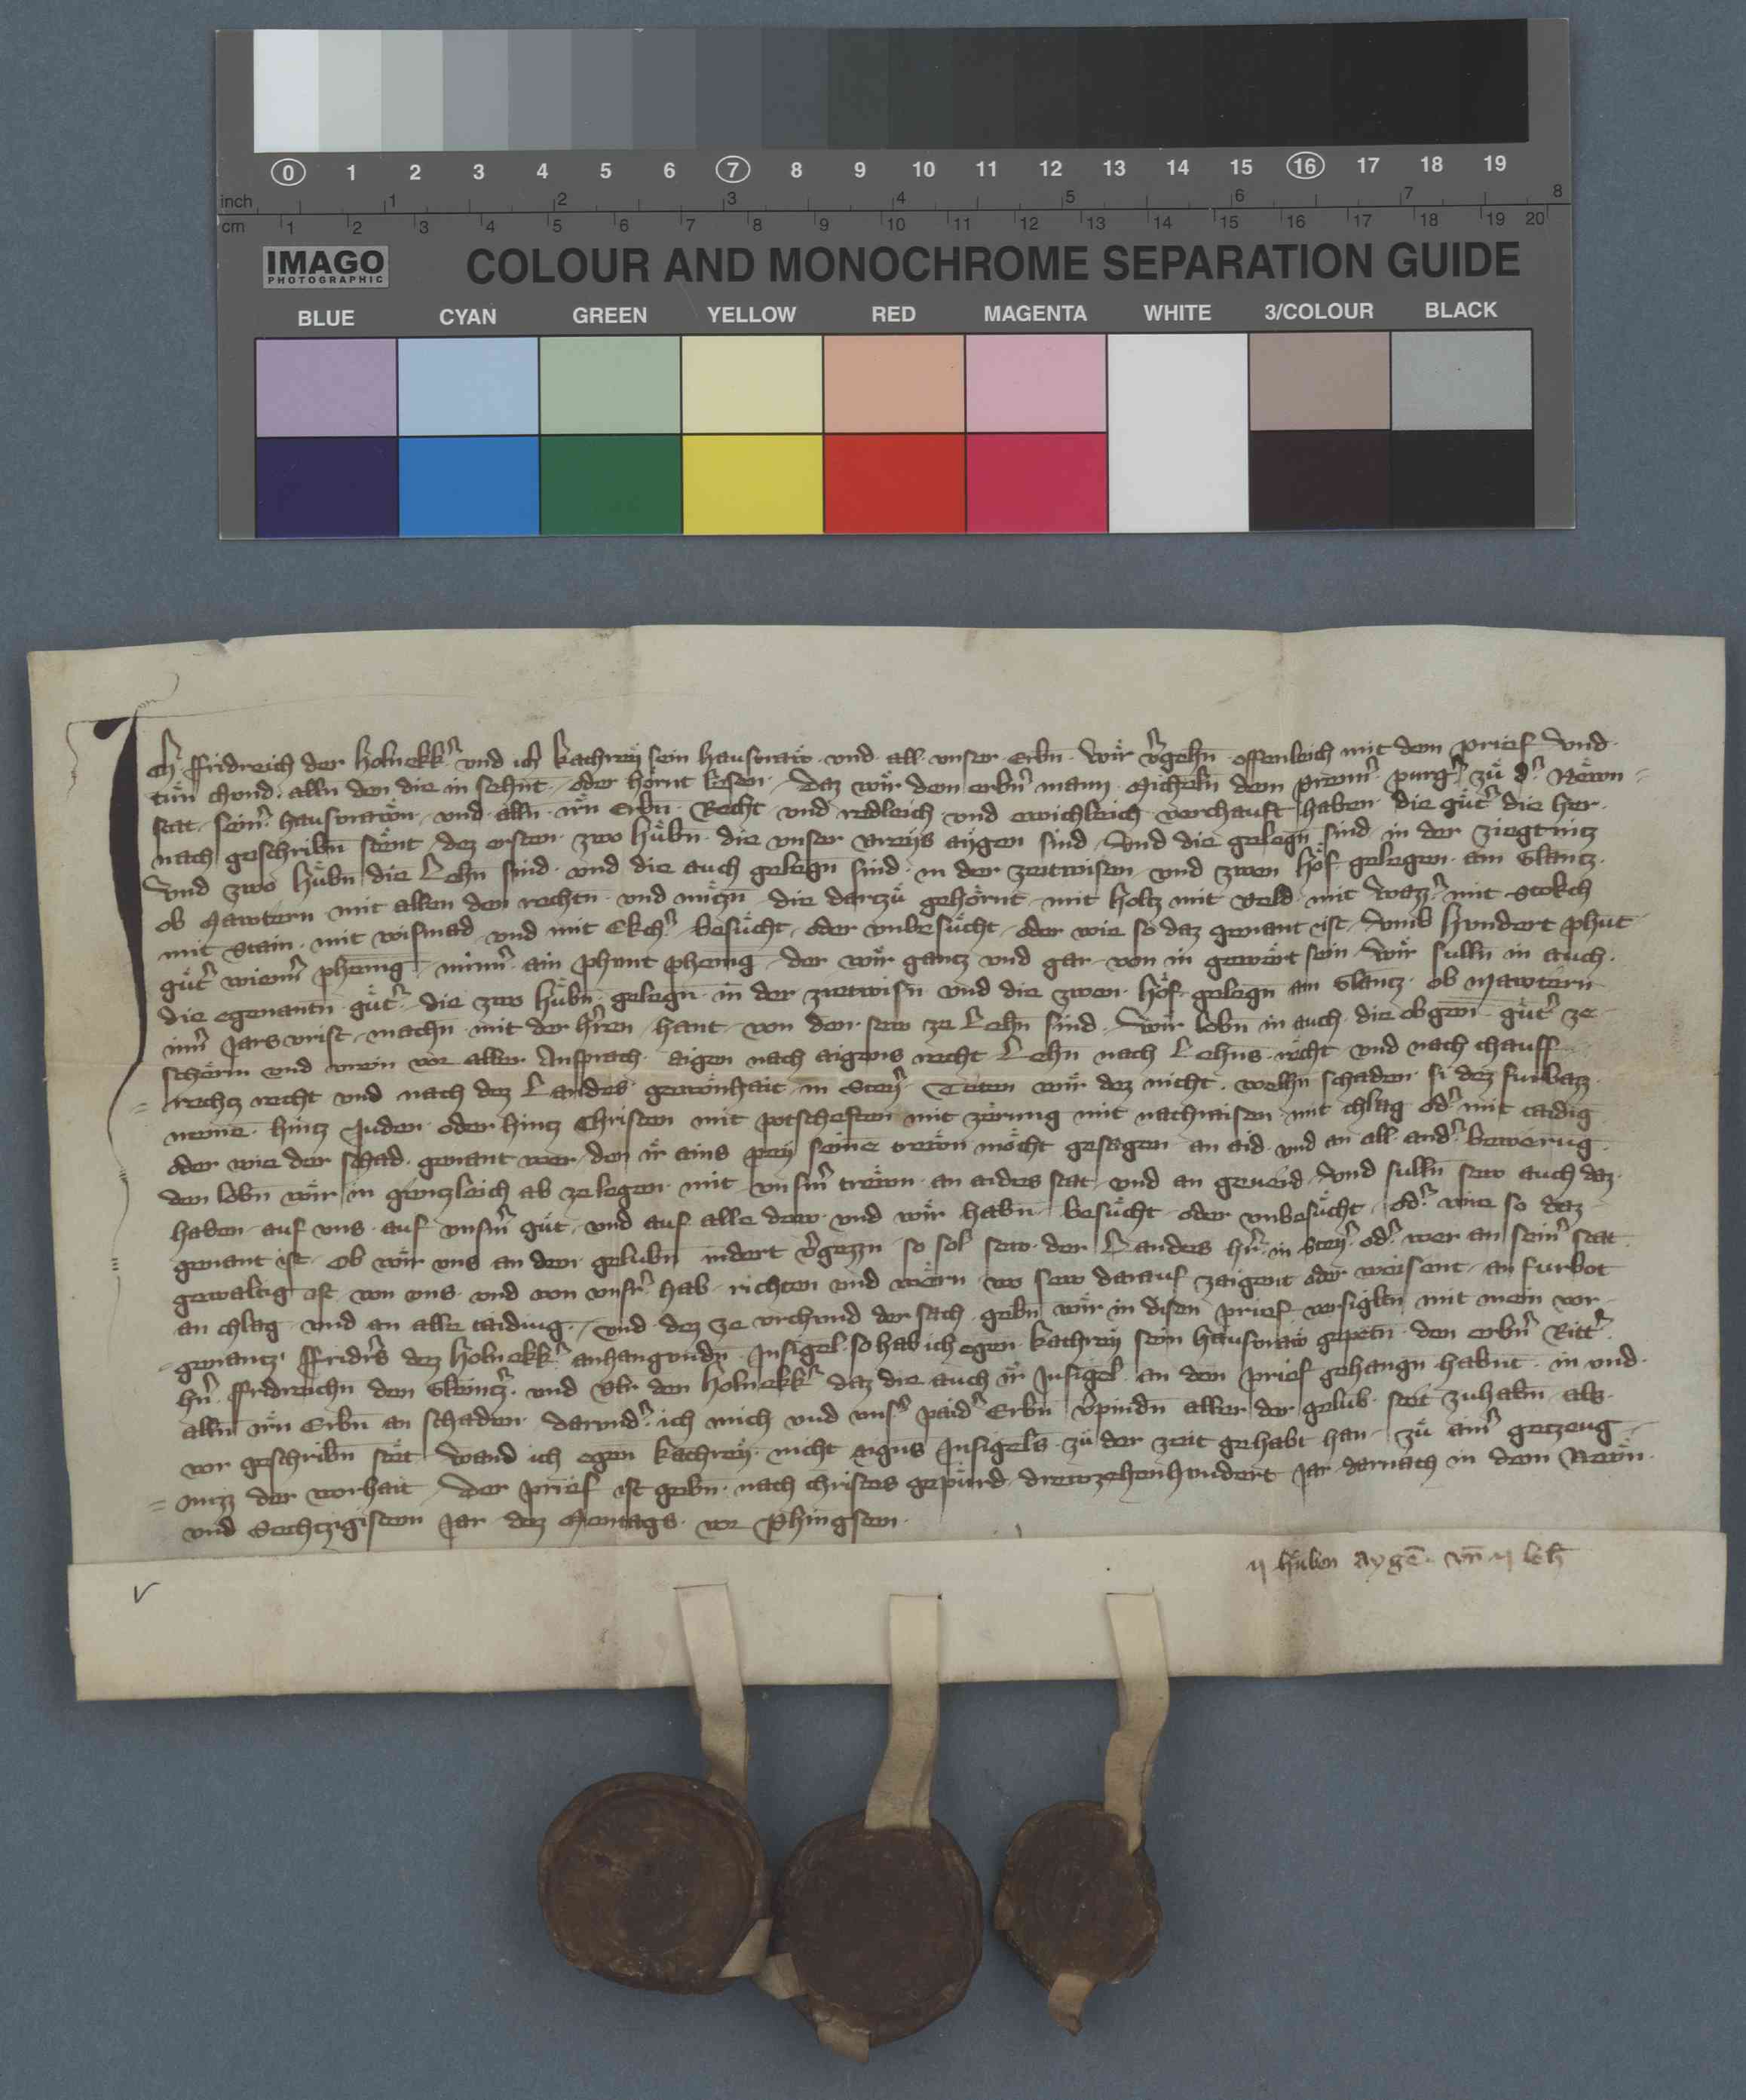 0 1 2 3 4 5 6 7 8 9 10 11 12 13 14 15 16 17 18 19
inch 1 2 3 4 5 6 7 8
cm 1 2 3 4 5 6 7 8 9 10 11 12 13 14 15 16 17 18 19 20
IMAGO
PHOTOGRAPHIC
COLOUR AND MONOCHROME SEPARATION GUIDE
BLUE CYAN GREEN YELLOW RED MAGENTA WHITE 3/COLOUR BLACK
Ich ffridreich der holnekk̾ und ich kathrey sein hausvraw und all unser Erbn̄ wir v̾gehn̄ offenleich mit dem prief Und
tün chund alln̄ den die in sehnt oder hornt lesen daz wir dem erbn̄ mann Micheln̄ dem purg̾ zů d̾ Newn
stat sein̾ hausvrawn und alln̄ irn Erbn̄ Recht und redleich und ewichleich verchauft haben die gůt̾ die her
nach geschribn̄ stent dez ersten zwo hůbn̄ die unser vreys aygen sind Und die gelegn̄ sind in der
Und zwo hůbn̄ die Lehn̄ sind und die auch gelegn̄ sind in der zeitwisen und zwen hof gelegen am Glantz
ob Mawtern mit allen den rechtn̄ und nützn̄ die darzů gehornt mit holtz mit veld mit wazz̾ mit Stokch
mit Stain mit wismad und mit Ekch̾ besůcht oder unbesůcht oder wie so daz genant ist Umb hundert phůt
gůt̾ wienn̾ phennīg minn̾ ain phunt phennīg der wir gantz und gar von in gewert sein Wir sulln̄ in auch
die egenantn̄ gůt̾ die zwo hůbn̄ gelegn̄ in der zietwisn̄ und die zwen hof gelegn̄ am Glantz ob Mawtern
inn̾ Jars vrist machn̄ mit der h̾ren hant von den sew ze Lehn̄ sind Wir lobn̄ in auch die obgen̄ gůt̾ ze
scherm und vrein vor aller Ansprach aigen nach aigens recht Lehn̄ nach Lehns recht und nach chauff
rechtz recht und nach dez Landes gewonhait in Stey̾ Teten wir dez nicht welhn̄ schaden si dez furbaz
neme hintz Juden oder hintz Christen mit potscheften mit zerung mit nachraisen mit chlag od̾ mit taidig
oder wie der schad genant wer den ir ains pey seine trewn mocht gesagen an aid und an all and̾ bewerūg
den lobn̄ wir in gentzleich ab zelegen mit unsn̾ trewn an aides stat und an geverd Und sulln̄ sew auch daz
haben auf uns auf unsn̾ gůt und auf alle dew und wir habn̄ besůcht oder unbesůcht od̾ wie so daz
genant ist Ob wir uns an den gelubn̄ indert v̾gezzn so sol sew der Landes h̾r in Stey̾ od̾ wer an sein̾ stat
gewaltig ist von uns und von unsr̾ hab richten und wern wo sew darauf zaigent oder weisent an furbot
an chlag und an alle taiding Und dez ze urchund der sach gebn̄ wir in disen prief versigltn̄ mit mein vor
genantz ffridrs dez holnekk̾ anhangundn̄ Insigel so hab ich egen kathrey sein hausvraw gepetn̄ den erbn̾ Ritt̾
h̾n ffridreichn den und Ulr den holnekk̾ daz die auch ir Insigel an den prief gehangn̄ habnt in und
alln̄ irn Erbn̄ an schaden darund̾ ich mich und uns̾ paid̾ Erbn̄ v̾pindn̄ aller der gelub stet zuhabn̄ als
vor geschribn̄ stet Wand ich egen kathrey nicht aigns Insigels zů der zeit gehabt han zů ain̾ getzeug
nuzz der worhait Der prief ist gebn̄ nach christes gepürd drewzehenhundert Jar darnach in dem Newn
und Sechtzigistem Jar dez Mentags vor Phingsten
ij hůben aygē vn̄ ij leh̄
V